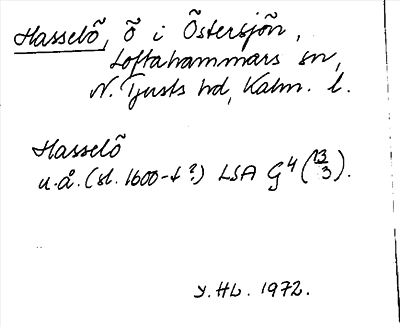 Hasselö, ö i Östersjön,
Loftahammars sn,
N. Tjusts hd, Kalm. l.
Hasselö
u.å. (sl. 1600-t ?) LSA G4 (13/3).
Y. HL. 1972.